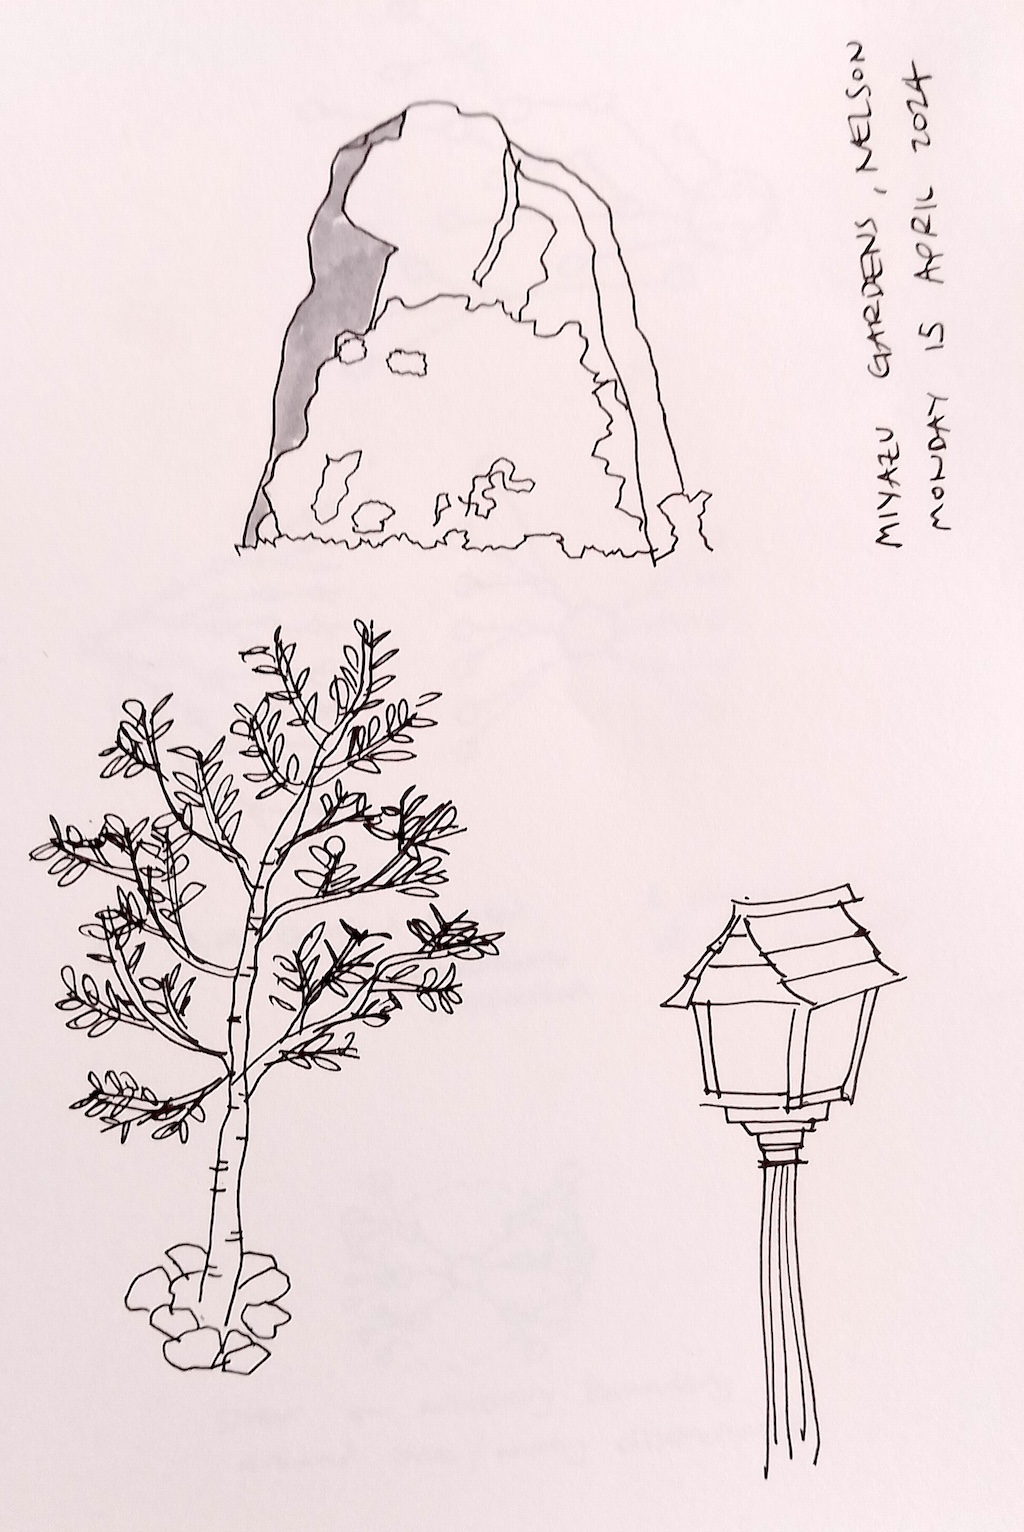 MIYAZU GARDENS, NELSON
MONDAY 15 APRIL 2024